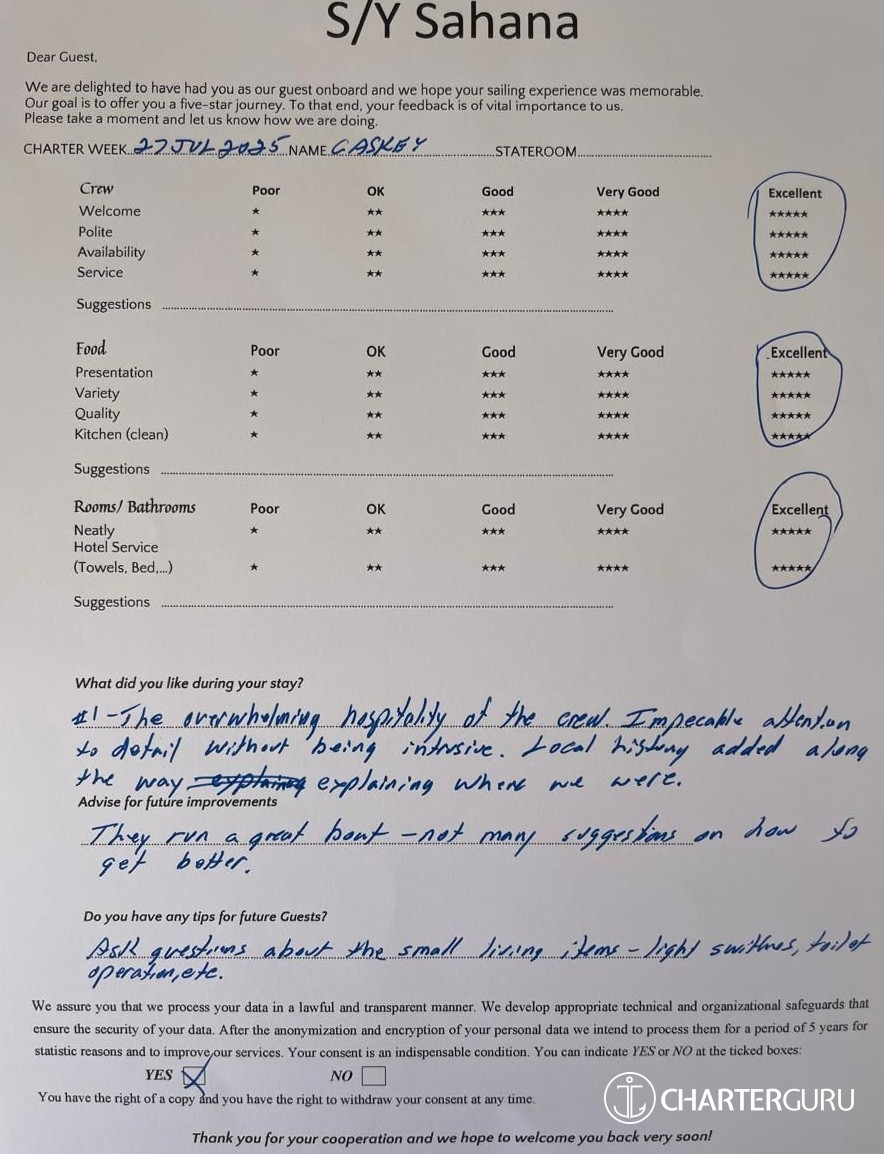 S/Y Sahana
Dear Guest,
We are delighted to have had you as our guest onboard and we hope your sailing experience was memorable.
Our goal is to offer you a five-star journey. To that end, your feedback is of vital importance to us.
Please take a moment and let us know how we are doing.
CHARTER WEEK 27 JUL 2025 NAME CASKEY STATEROOM
Crew Poor OK Good Very Good Excellent
Welcome ★ ★★ ★★★ ★★★★ ★★★★★
Polite ★ ★★ ★★★ ★★★★ ★★★★★
Availability ★ ★★ ★★★ ★★★★ ★★★★★
Service ★ ★★ ★★★ ★★★★ ★★★★★
Suggestions
Food Poor OK Good Very Good Excellent
Presentation ★ ★★ ★★★ ★★★★ ★★★★★
Variety ★ ★★ ★★★ ★★★★ ★★★★★
Quality ★ ★★ ★★★ ★★★★ ★★★★★
Kitchen (clean) ★ ★★ ★★★ ★★★★ ★★★★★
Suggestions
Rooms/ Bathrooms Poor OK Good Very Good Excellent
Neatly ★ ★★ ★★★ ★★★★ ★★★★★
Hotel Service
(Towels, Bed,...) ★ ★★ ★★★ ★★★★ ★★★★★
Suggestions
What did you like during your stay?
#1 - The overwhelming hospitality of the crew. Impecable attention
to detail without being intrusive. Local history added along
the way explaining where we were.
Advise for future improvements
They run a great boat - not many suggestions on how to
get better.
Do you have any tips for future Guests?
Ask questions about the small living items - light swithes, toilet
operation, etc.
We assure you that we process your data in a lawful and transparent manner. We develop appropriate technical and organizational safeguards that
ensure the security of your data. After the anonymization and encryption of your personal data we intend to process them for a period of 5 years for
statistic reasons and to improve our services. Your consent is an indispensable condition. You can indicate YES or NO at the ticked boxes:
YES NO
You have the right of a copy and you have the right to withdraw your consent at any time.
CHARTERGURU
Thank you for your cooperation and we hope to welcome you back very soon!